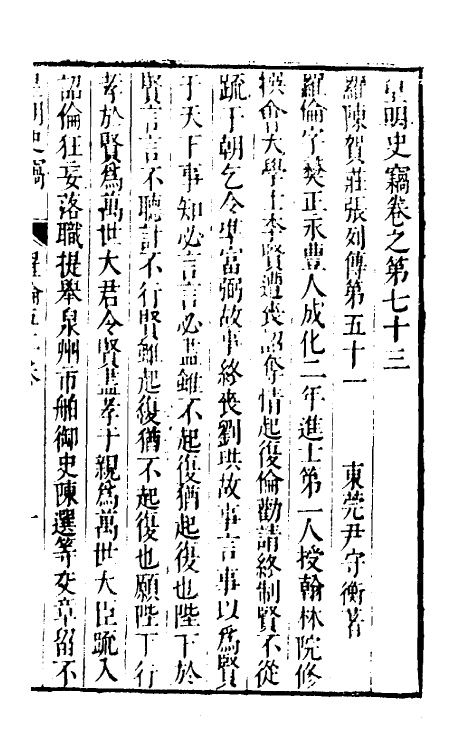 皇明史竊卷之第七十三
羅陳賀莊張列傳第五十一 東莞尹守衡著
羅倫字彛正永豊人成化二年進士第一人授翰林院修
撰會大學士李賢遭喪詔奪情起復倫勸請終制賢不從
疏于朝乞令準富弼故事終喪劉珙故事言事以爲賢
于天下事知必言言必盡雖不起復猶起復也陛下於
賢言言不聽計不行賢雖起復猶不起復也願陛下行
孝於賢爲萬世大君令賢盡孝于親爲萬世大臣疏入
詔倫狂妄落職提舉泉州市舶御史陳選等交章留不
皇明史竊